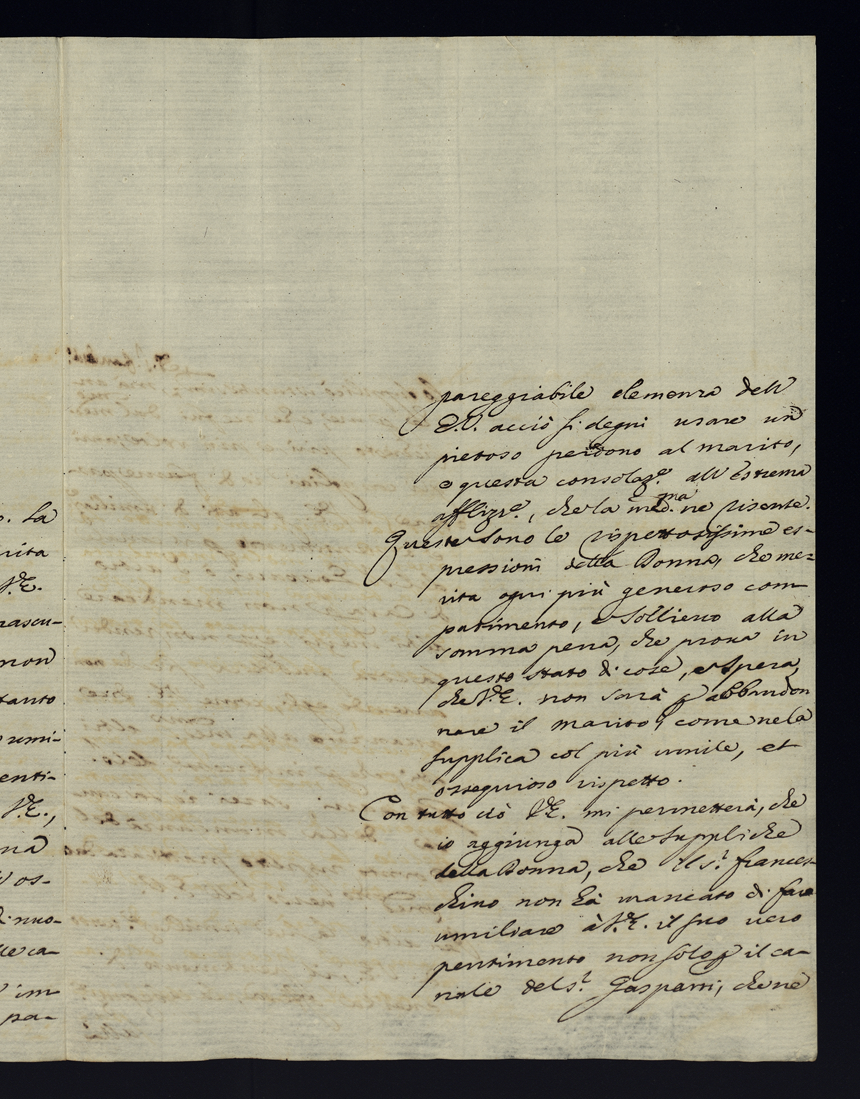 o. La
rita
V.E.
rascu-
non
tanto
umi-
enti-
V.E.,
na
os-
di nuo-
lle ca-
im-
pa-
pareggiabile clemenza dell'
E.V. acciò si degni usare un
pietoso perdono al marito,
e questa consolaz.e all'estrema
afflizz.e, che la med.ma ne risente.
Queste sono le rispettosissime es-
pressioni della Donna, che me-
rita ogni più generoso com-
patimento, e sollievo alla
somma pena, che prova in
questo stato di cose, e spera,
che V.E. non sarà p abbandon
nare il marito, come nela
supplica col più umile, et
ossequioso rispetto.
Con tutto ciò V.E. mi permetterà, che
io aggiunga alle suppliche
della Donna, che il s.r frances-
chino non hà mancato di fare
umiliare à V.E. il suo vero
pentimento non solo p il ca-
nale del s.r Gasparri, che ne